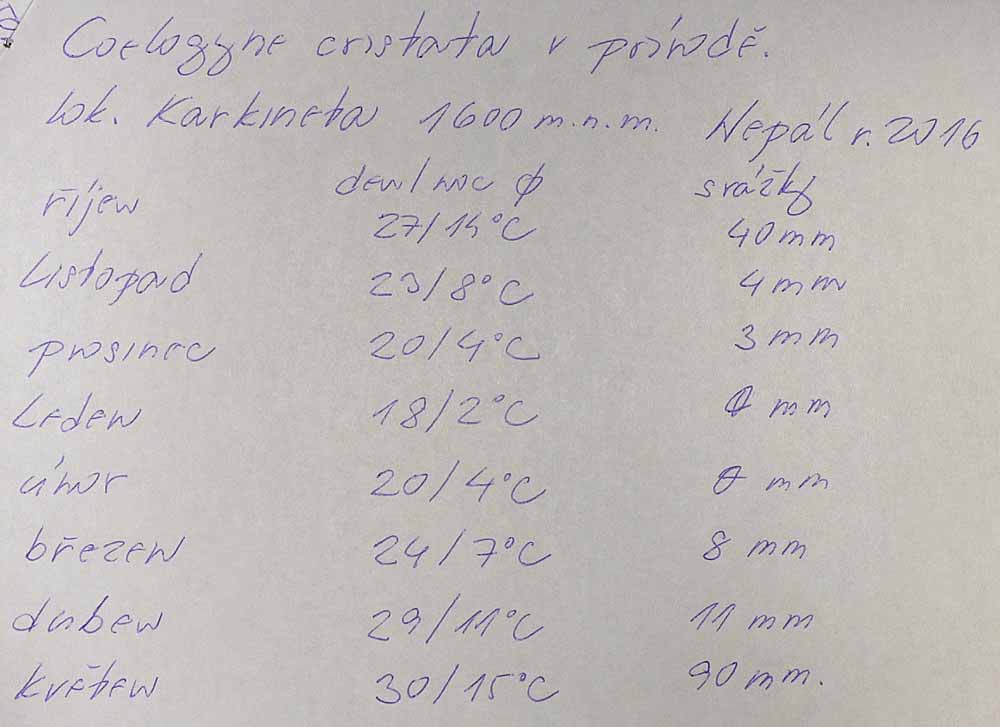 Coelogyne cristata v přírodě.
lok. Karkineta 1600 m.n.m. Nepál r. 2016
den/noc ϕ srážky
říjen 27/14°C 40 mm
Listopad 23/8°C 4 mm
prosinec 20/4°C 3 mm
Leden 18/2°C 0 mm
únor 20/4°C 0 mm
březen 24/7°C 8 mm
duben 29/11°C 11 mm
květen 30/15°C 90 mm.